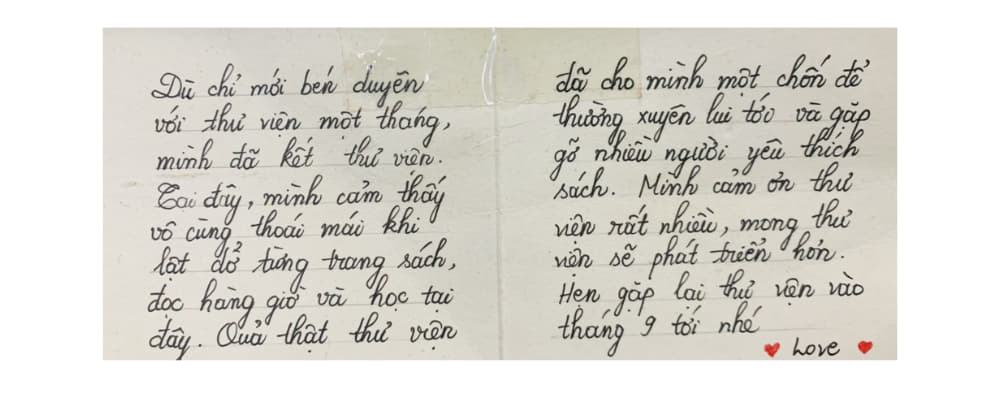 Dù chỉ mới bén duyên
với thư viện một tháng,
mình đã kết thư viện.
Tại đây, mình cảm thấy
vô cùng thoái mái khi
lật dở từng trang sách,
đọc hàng giờ và học tại
đây. Quả thật thư viện
đã cho mình một chốn để
thường xuyên lui tới và gặp
gỡ nhiều người yêu thích
sách. Mình cảm ơn thư
viện rất nhiều, mong thư
viện sẽ phát triển hơn.
Hẹn gặp lại thư viện vào
tháng 9 tới nhé
Love